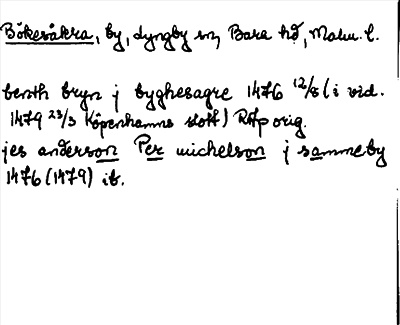 Bökesåkra, by, Lyngby sn, Bara hd, Malm. l.
benth bryn j byghesagre 1476 12/8 (i vid.
1479 23/3 Köpenhamns slott) RAp orig.
jes anderson Per michelson j sammeby
1476 (1479) ib.